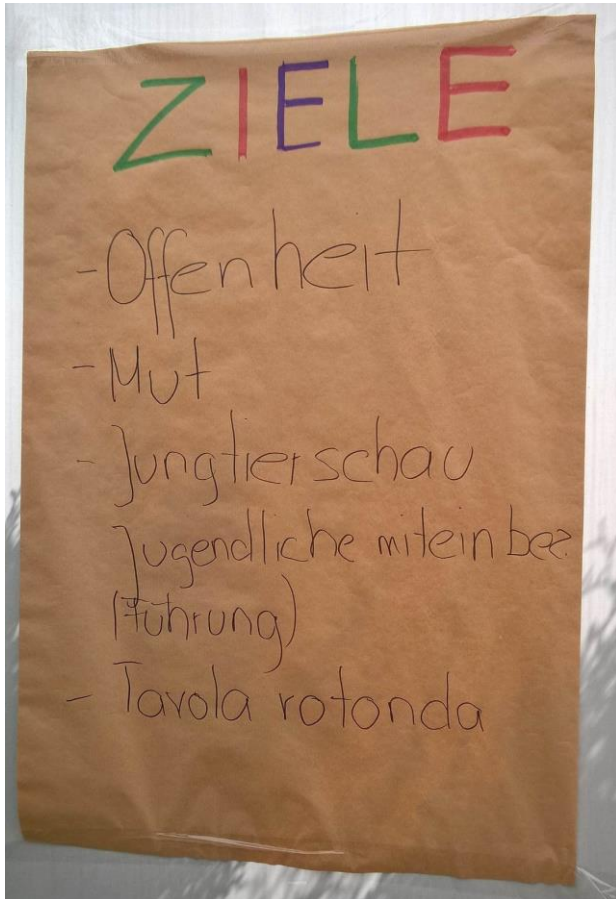 ZIELE
- Offenheit
- Mut
- Jungtierschau
Jugendliche miteinbez.
(Führung)
- Tavola rotonda